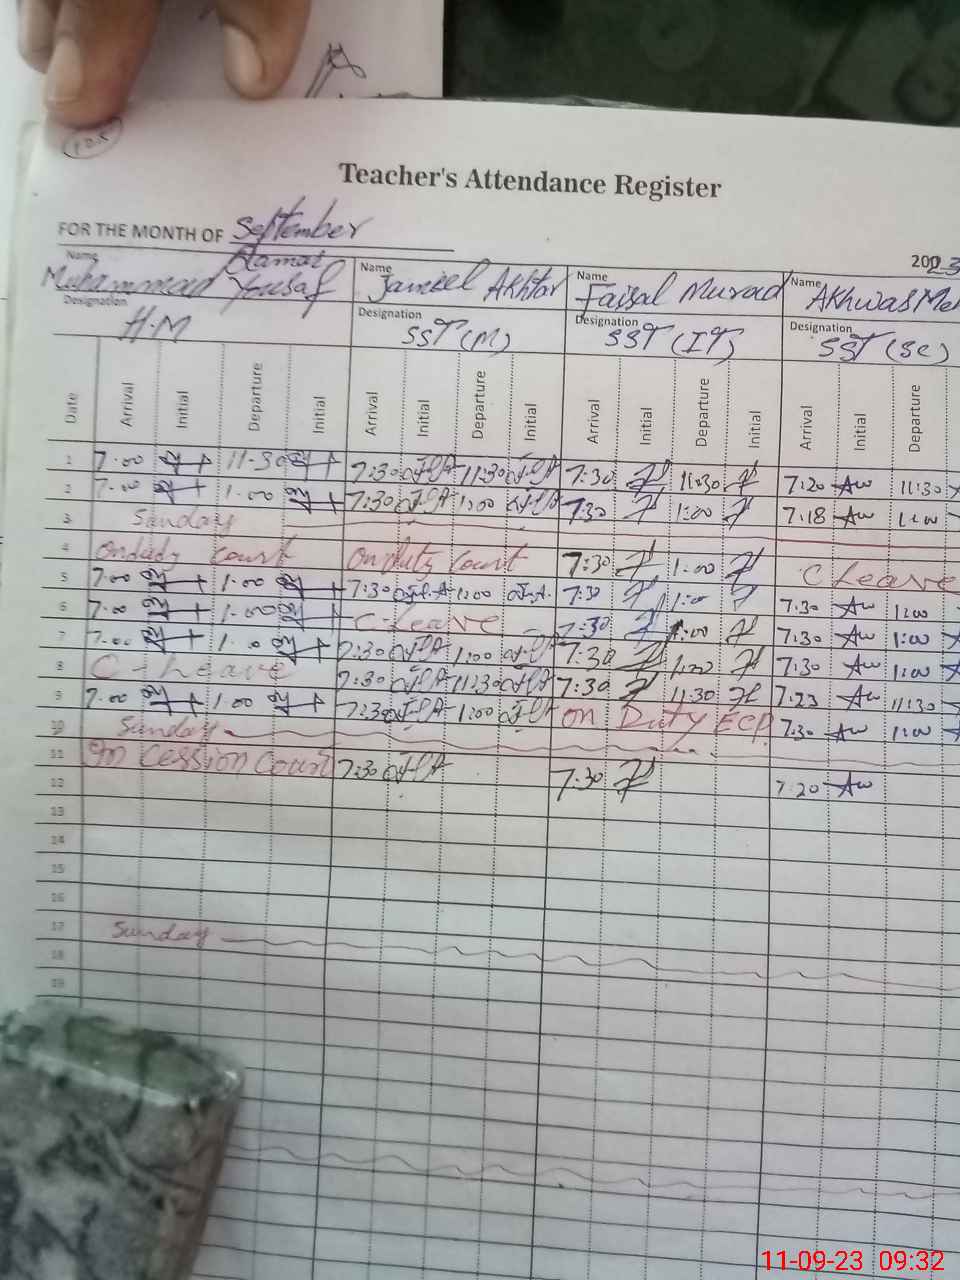 Teacher's Attendance Register
FOR THE MONTH OF September
2023
Name Muhammad Yousaf Name Jameel Akhtar Name Faisal Murad Name Akhwas
Designation H.M Designation SST (M) Designation SST (IT) Designation SST (Sc)
Date Arrival Initial Departure Initial Arrival Initial Departure Initial Arrival Initial Departure Initial Arrival Initial Departure
1 7.00 11-30 7:30 11:30 7:30 11:30 7:20 Aw 11:30
2 7.00 1.00 7:30 1:00 7:30 1:00 7:18 Aw 1:00
3 Sunday
4 On duty court On duty court 7:30 1:00 C Leave
5 7.00 1.00 7:30 1:00 7:30 1:00 7:30 Aw 1:00
6 7.00 1.00 C-Leave 7:30 1:00 7:30 Aw 1:00
7 7.00 1.00 7:30 1:00 7:30 1:00 7:30 Aw 1:00
8 C-Leave 7:30 11:30 7:30 11:30 7:23 Aw 11:30
9 7.00 1.00 7:30 1:00 on Duty ECP 7:30 Aw 1:00
10 Sunday
11 In Cession Court 7:30 7:30 7:20 Aw
12
13
14
15
16
17 Sunday
18
19
11-09-23 09:32